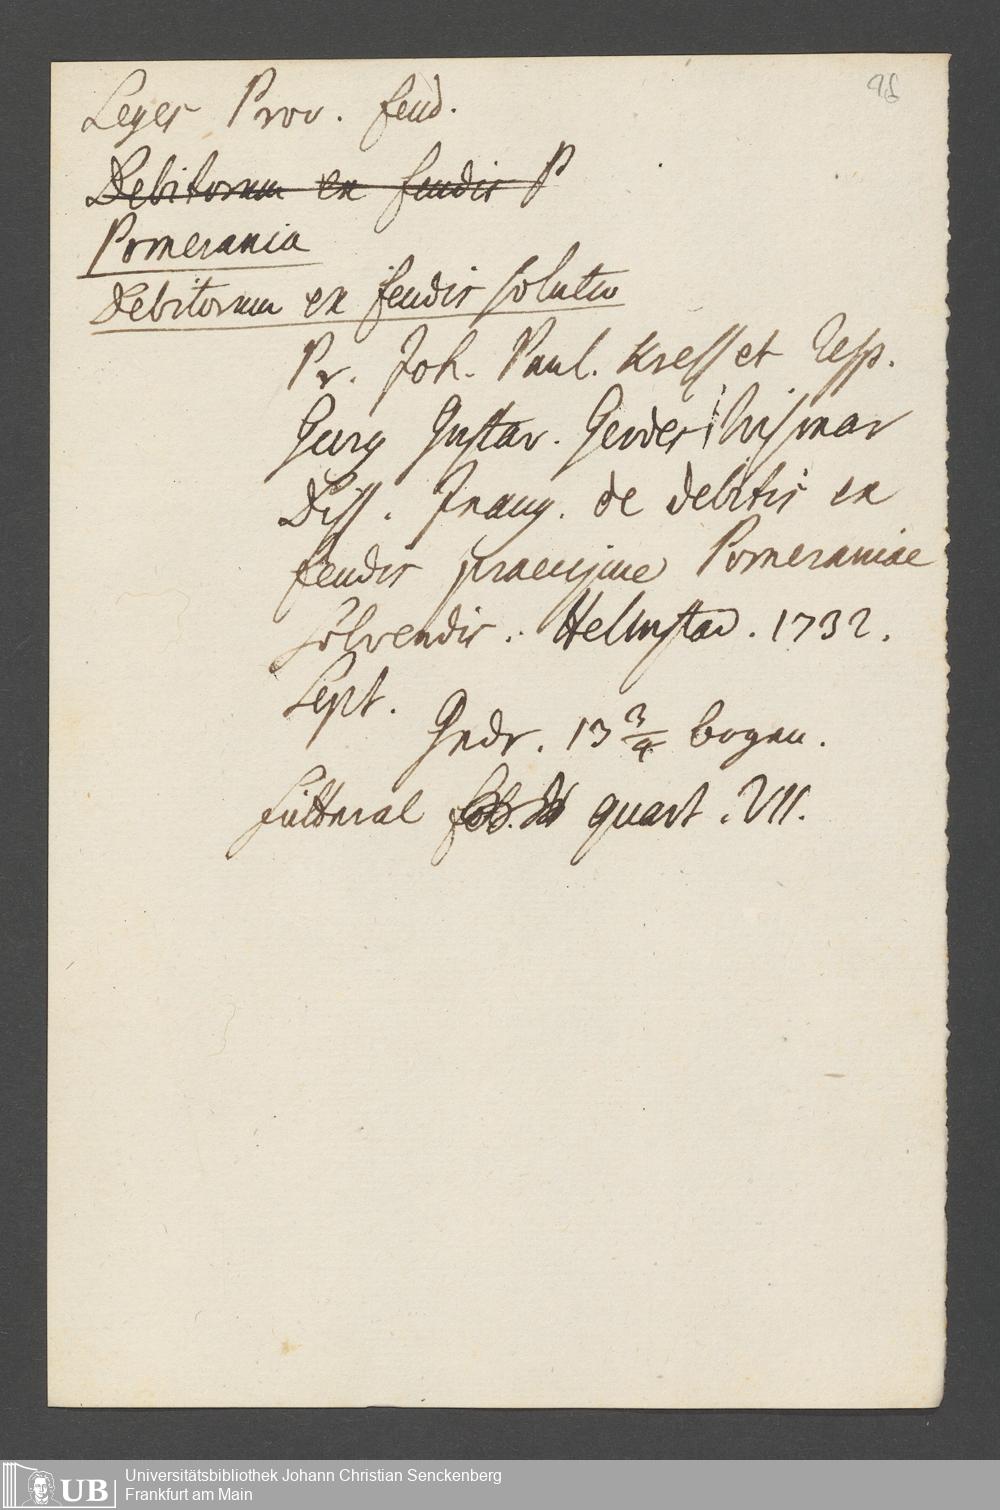 98
Leges Prov. feud.
Debitorum ex feudis P
Pomerania
Debitorum ex feudis solutio
Pr. Joh. Paul. Kress et Resp.
Georg Gustav. Gerdes Wismar
Diss. Inaug. de debitis ex
feudis praecipue Pomeraniae
solvendis. Helmstad. 1732.
Sept.
Gedr. 13 3/4 bogen.
Futteral quart. VII.
UB Universitätsbibliothek Johann Christian Senckenberg
Frankfurt am Main